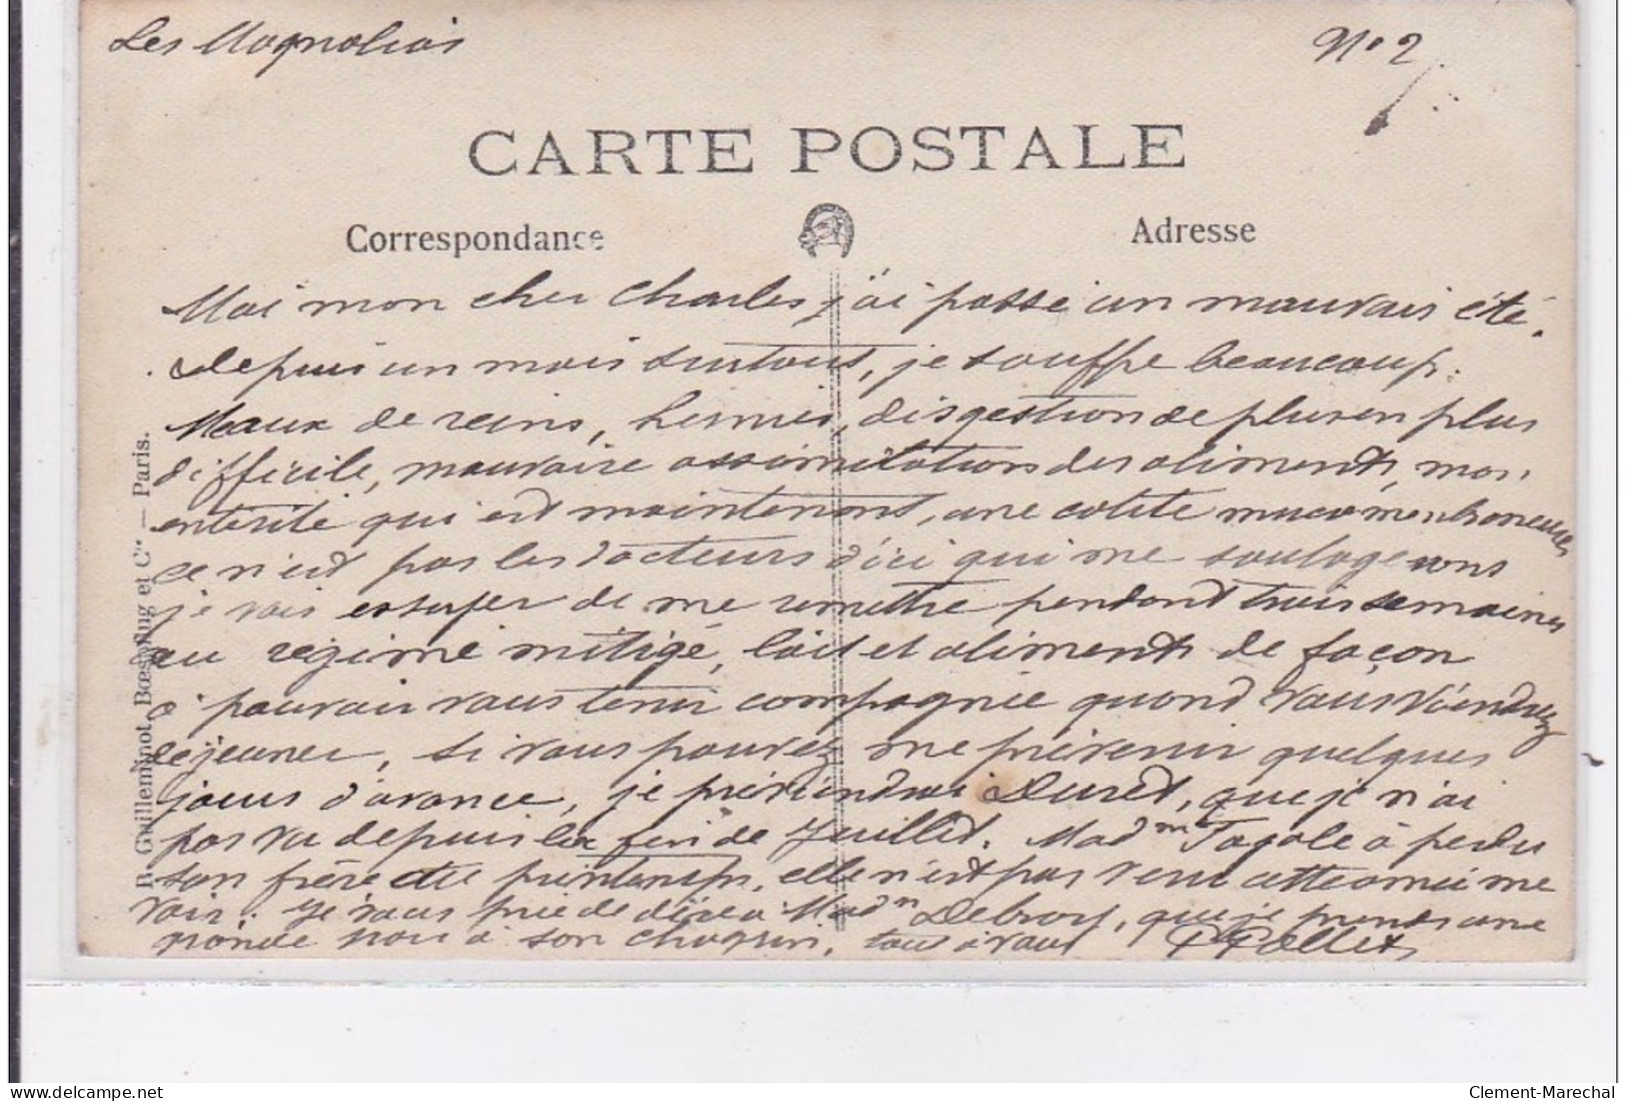 Les Magnolias N° 2
CARTE POSTALE
Correspondance Adresse
Moi mon cher Charles, j'ai passé un mauvais été.
depuis un mois surtout, je souffre beaucoup.
Maux de reins, hernies, disgestion de plus en plus
difficile, mauvaise assimilation des aliments, mon
enterite qui est maintenant, une colite mucomenbraneuse
ce n'est pas les docteurs d'ici qui me soulagerons
je vais essayer de me remettre pendant trois semaines
au régime mitigé, lait et aliments de façon
à pouvoir vous tenir compagnie quand vous viendrez
dejeuner, si vous pouvez me prévenir quelques
jours d'avance, je préviendrai Duret, que je n'ai
pas vu depuis la fin de Juillet. Mad me à perdu
son frère au printemps, elle n'est pas venu cette année me
voir. Je vous prie de dire à Mad m Debrosy, que je prends une
grande part à son chagrin, tout à vous P Pellet
B. Guilleminot, Bœspflug et Cie — Paris.
delcampe.net
Clement-Marechal